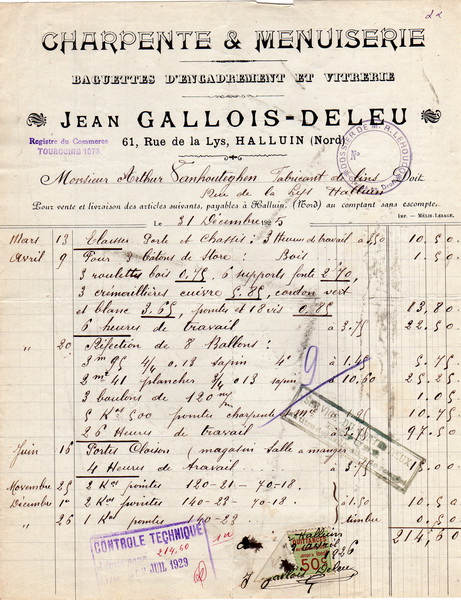 22
CHARPENTE & MENUISERIE
BAGUETTES D'ENCADREMENT ET VITRERIE
JEAN GALLOIS-DELEU
Registre du Commerce
TOURCOING 1073
61, Rue de la Lys, HALLUIN (Nord)
DOSSIER DE M. R. LEHOUCQ
No
Monsieur Arthur Vanhouteghen Fabricant de lins Doit
Rue de la Lys Halluin
Pour vente et livraison des articles suivants, payables à Halluin, (Nord) au comptant sans escompte.
Le 31 Décembre 1925
Imp. — Mélis-Lesage.
Mars 13 Classer Porte et Chassis : 3 Heures de travail à 3,50 10.50
Avril 9 Pour 3 batons de Store : Bois 1.50
3 roulettes bois 0,75 6 supports fonte 2,70,
3 crémaillières cuivre 5.85, cordon vert
et blanc 3.65, pointes et 18 vis 0.85 13,80
6 heures de travail à 3.75 22.50
" 20 Réfection de 8 Ballons :
3m95 4/4 0.13 sapin à 1.45 5.75
2m41 planches 4/4 0.13 sapin à 10,60 25.25
3 boulons de 120 m/m 1.05
5 Kos 500 pointes charpente à 1.95 10.75
26 Heures de travail à 3.75 97.50
Juin 16 Portes Cloison (magasin Salle a manger)
4 Heures de travail à 3.75 15.00
Novembre 25 2 Kos pointes 120-21 - 70-18
Décembre 1er 2 Kos pointes 140-23 - 70-18 à 1.50 10.50
" 26 1 Kos pointes 140-23 timbre 0.50
214,60
9
CONTROLE TECHNIQUE
214,60
JUIL 1929
QUITTANCES
50c
Halluin
1926
J. gallois Deleu